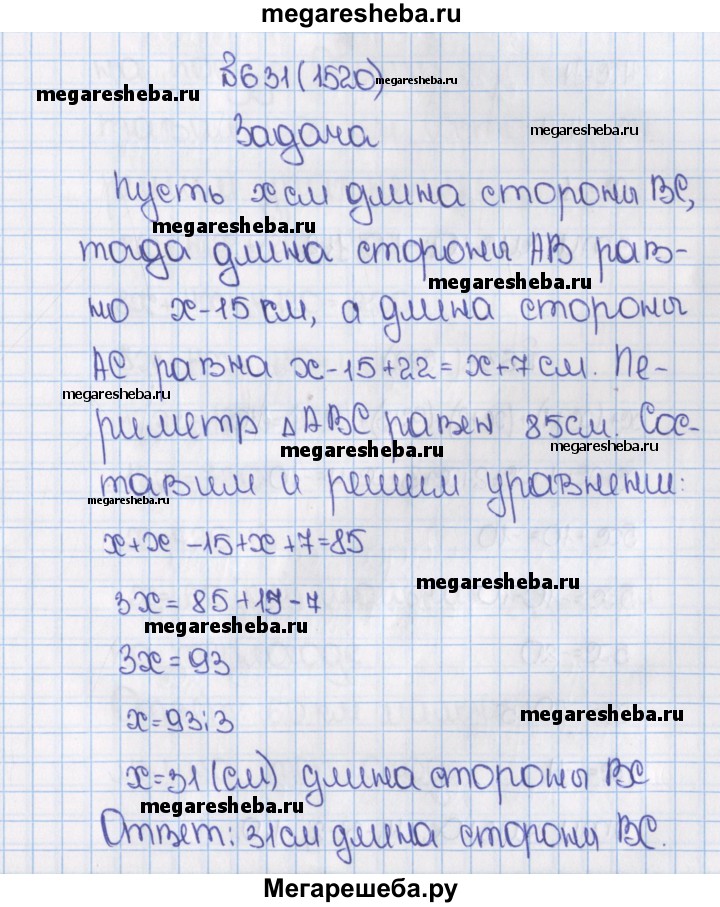 megaresheba.ru
В631(1520) megaresheba.ru
megaresheba.ru
Задача megaresheba.ru
Пусть x см длина стороны BC,
megaresheba.ru
тогда длина стороны AB рав-
megaresheba.ru
но x-15 см, а длина стороны
AC равна x-15+22=x+7 см. Пе-
megaresheba.ru
риметр △ABC равен 85см. Сос-
megaresheba.ru megaresheba.ru
тавим и решим уравнении:
megaresheba.ru
x+x-15+x+7=85
megaresheba.ru
3x=85+15-7
megaresheba.ru
3x=93
megaresheba.ru
x=93:3
x=31 (см) длина стороны BC
megaresheba.ru
Ответ: 31см длина стороны BC.
Мегарешеба.ру